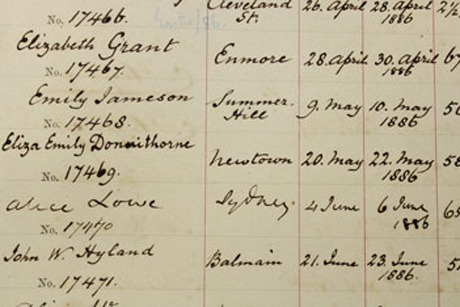 Cleveland St. 26. April 28. April 1886 2½
No. 17466.
Elizabeth Grant Enmore 28. April 30. April 1886 67
No. 17467.
Emily Jameson Summer-Hill 9. May 10. May 1886
No. 17468.
Eliza Emily Donnithorne Newtown 20. May 22. May 1886 58
No. 17469.
Alice Lowe Sydney 4 June 6 June 1886
No. 17470
John W. Hyland Balmain 21. June 23. June 1886.
No. 17471.